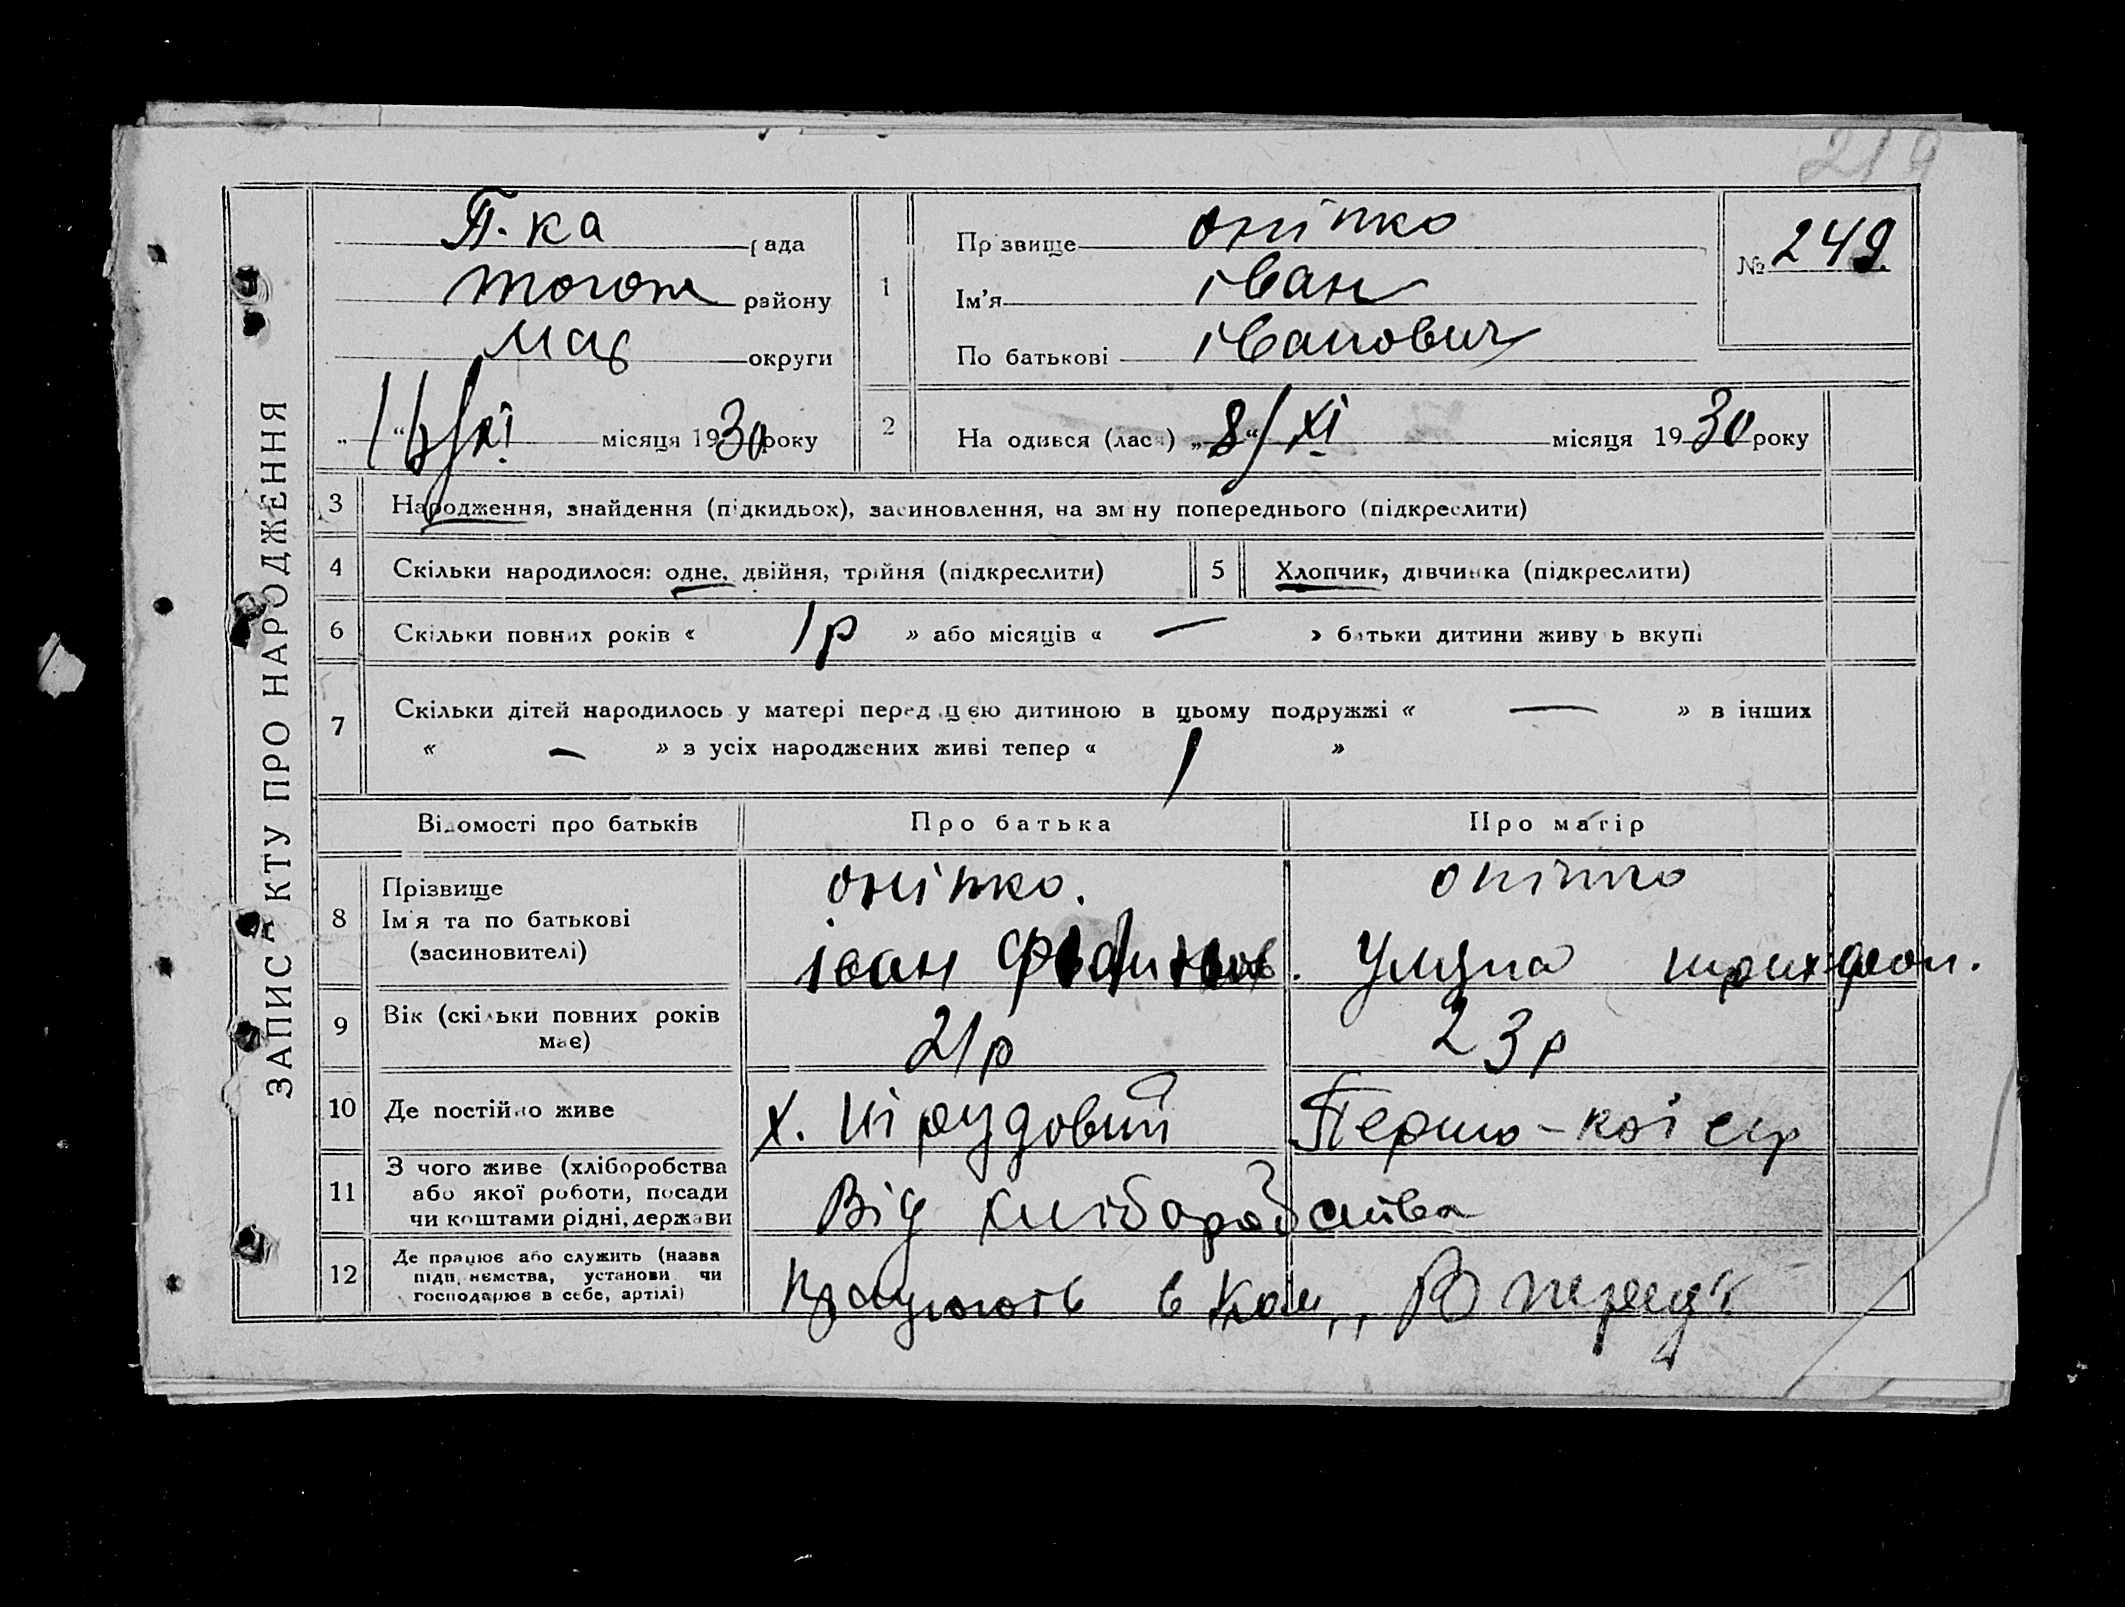 219
П.ка рада
того ж району
Мар округи
„16“/XI місяця 1930 року
1
Прізвище Оніпко
Ім’я іван
По батькові іванович
№ 249
2
На одився (лася) „8“/XI місяця 1930 року
ЗАПИС АКТУ ПРО НАРОДЖЕННЯ
3 Народження, знайдення (підкидьох), засиновлення, на зміну попереднього (підкреслити)
4 Скільки народилося: одне, двійня, трійня (підкреслити)
5 Хлопчик, дівчинка (підкреслити)
6 Скільки повних років « 1 р » або місяців « — » батьки дитини живуть вкупі
7 Скільки дітей народилось у матері перед цією дитиною в цьому подружжі « — » в інших
« — » з усіх народжених живі тепер « 1 »
Відомості про батьків Про батька Про матір
8 Прізвище
Ім’я та по батькові
(засиновителі)
оніпко.
іван
оніпко
Уляна
9 Вік (скільки повних років
має)
21 р
23 р
10 Де постійно живе
Х.
11 З чого живе (хліборобства
або якої роботи, посади
чи коштами рідні, держави
Від хліборобства
12 Де працює або служить (назва
підприємства, установи чи
господарює в себе, артілі)
працюють в Ком „Вперед“